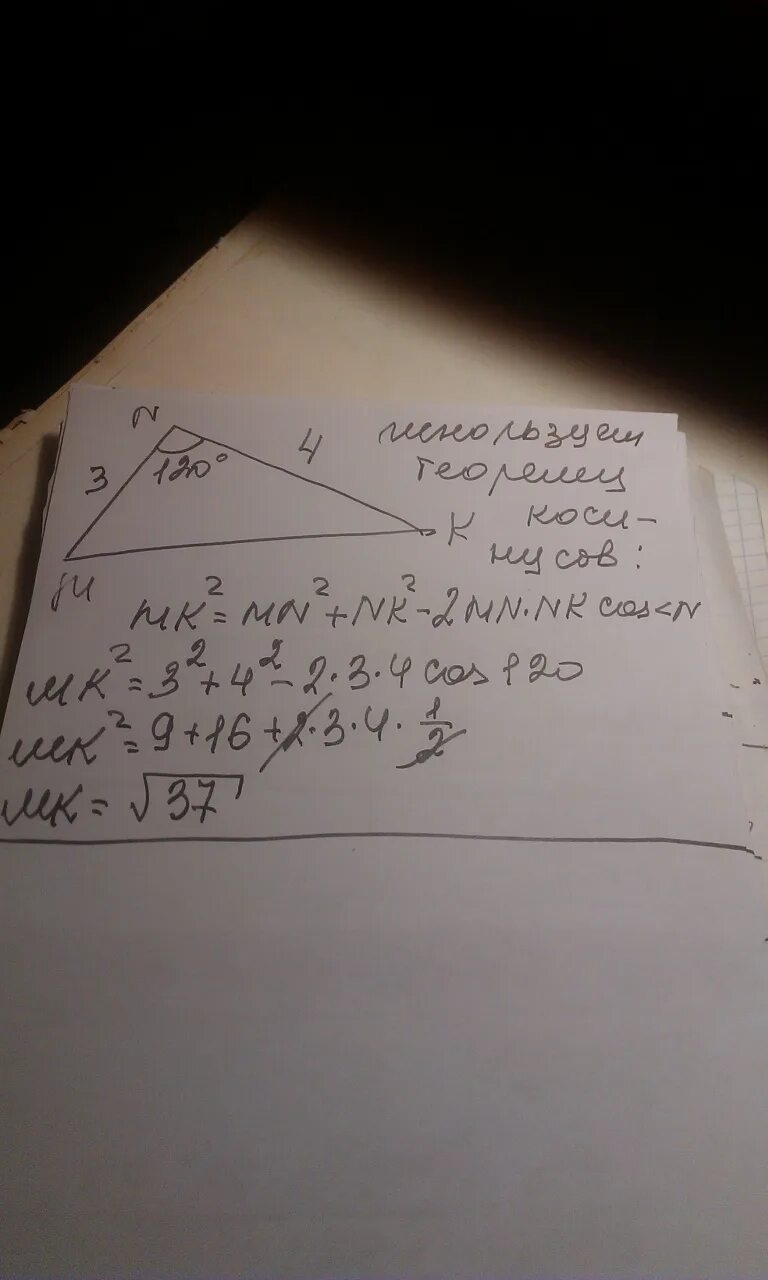 N
3
120°
4
K
M
используем
теорему
коси-
нусов:
MK² = MN² + NK² - 2MN·NK cos<N
MK² = 3² + 4² - 2·3·4 cos 120
MK² = 9 + 16 + 2·3·4·1/2
MK = √37